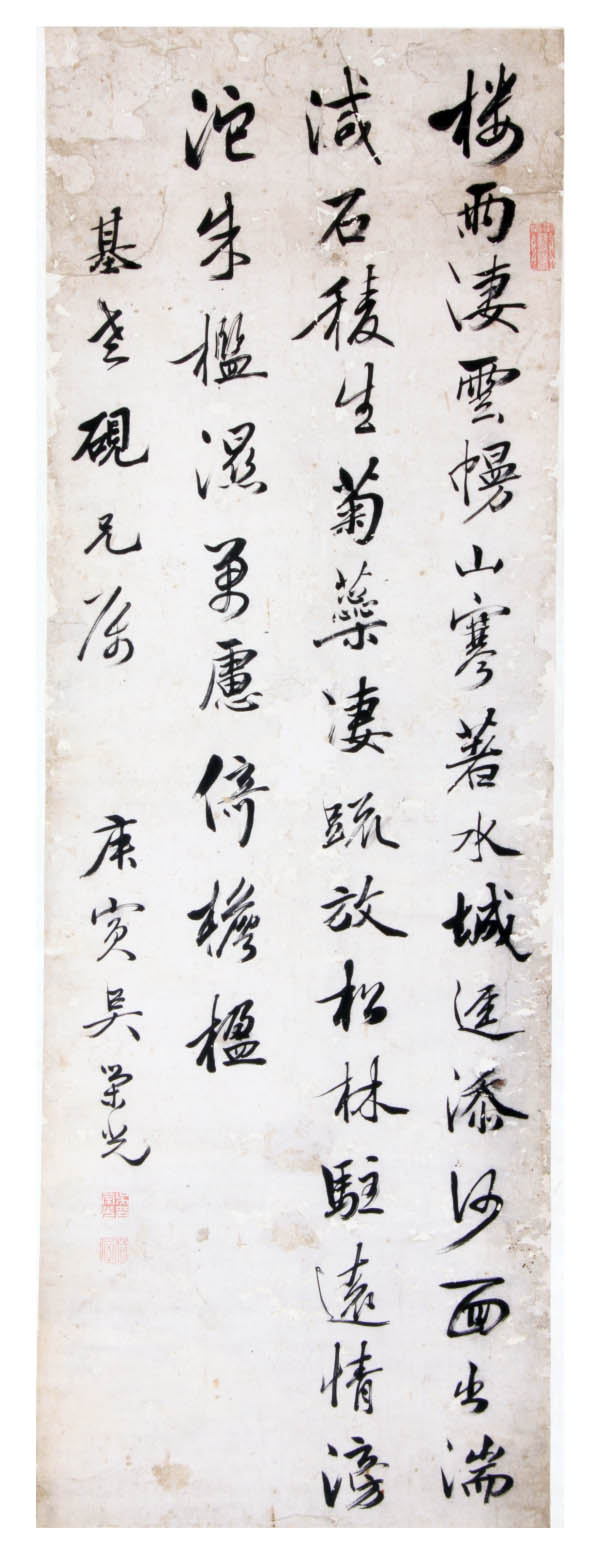 楼雨淒雲幌山寒著水城逕添沙面出湍
減石稜生菊蘂淒疏放松林駐遠情滂
沱朱檻濕萬慮倚檐楹
基老硯兄属
庚寅吴荣光